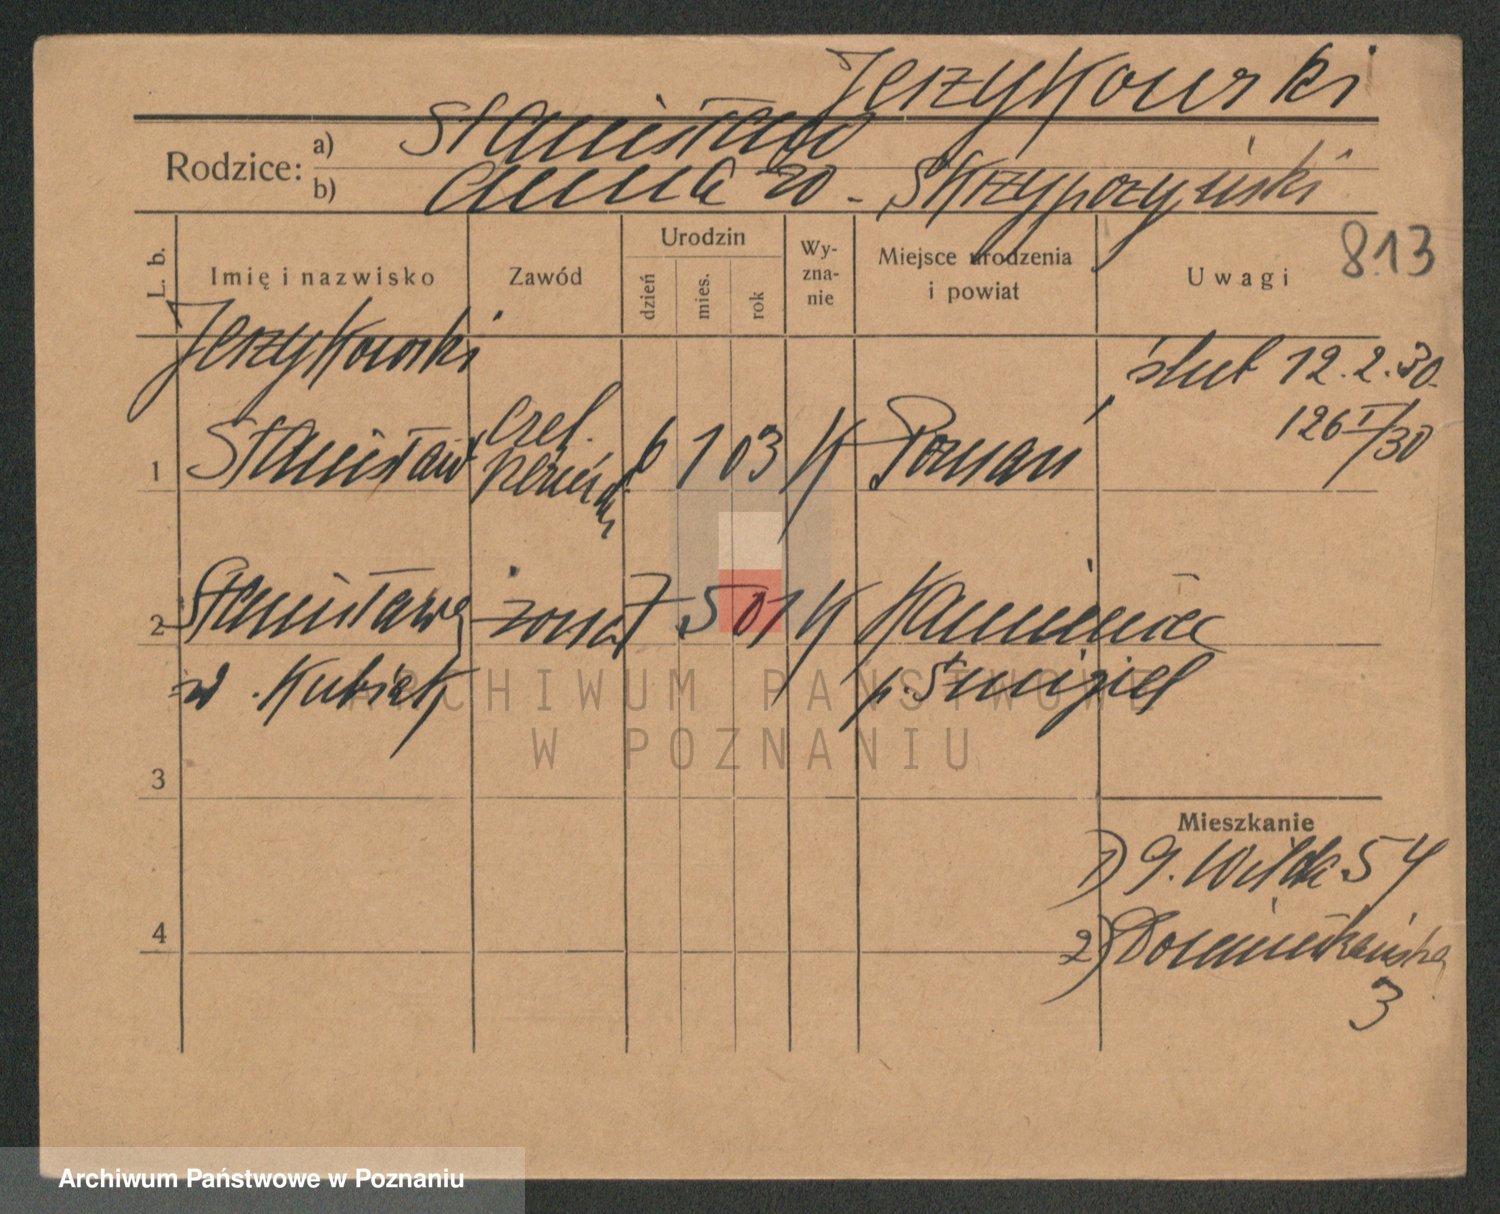 Jerzykowski
Rodzice:
a) Stanisław
b) Anna zd - Skrzypczyński
L. b.
Imię i nazwisko
Zawód
Urodzin
dzień
mies.
rok
Wy-
zna-
nie
Miejsce urodzenia
i powiat
Uwagi
813
Jerzykowski
ślub 12.2.30.
126 I/30
1 Stanisław czel. 6 1 03 K Poznań
2 Stanisława żona 7 5 01 K Kamieniec
zd. Kubiak p. Śmigiel
3
Mieszkanie
1) G. Wilda 54
4
2) Dominikańska
3
ARCHIWUM PAŃSTWOWE
W POZNANIU
Archiwum Państwowe w Poznaniu